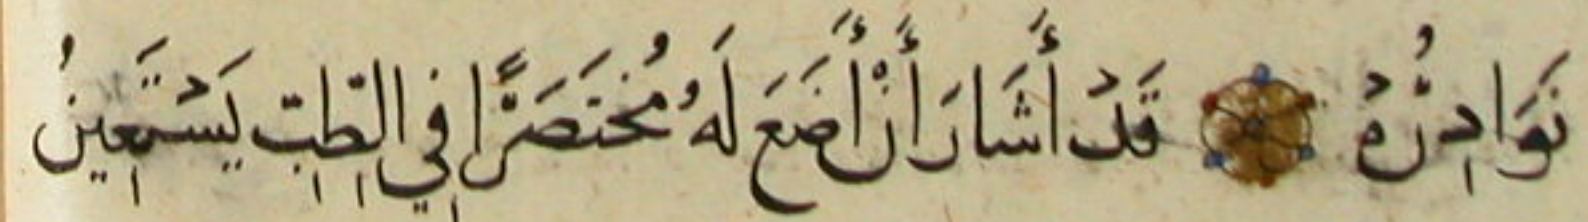 نَوَادِرُهُ قَدْ أَشَارَ أَنْ أَضَعَ لَهُ مُخْتَصَرًا فِي الطِّبِّ يَسْتَعِينُ